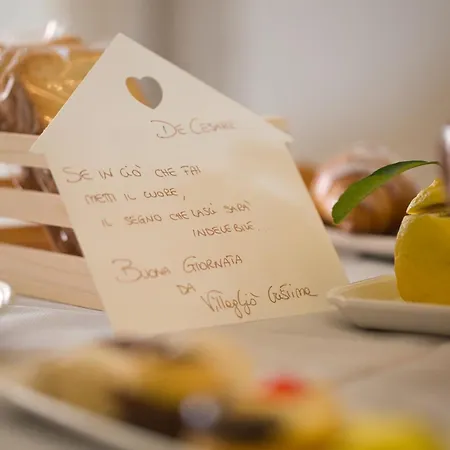 DE CESARE
SE IN CIÒ CHE FAI
METTI IL CUORE,
IL SEGNO CHE LASCI SARÀ
INDELEBILE...
BUONA GIORNATA
DA Villaggiò